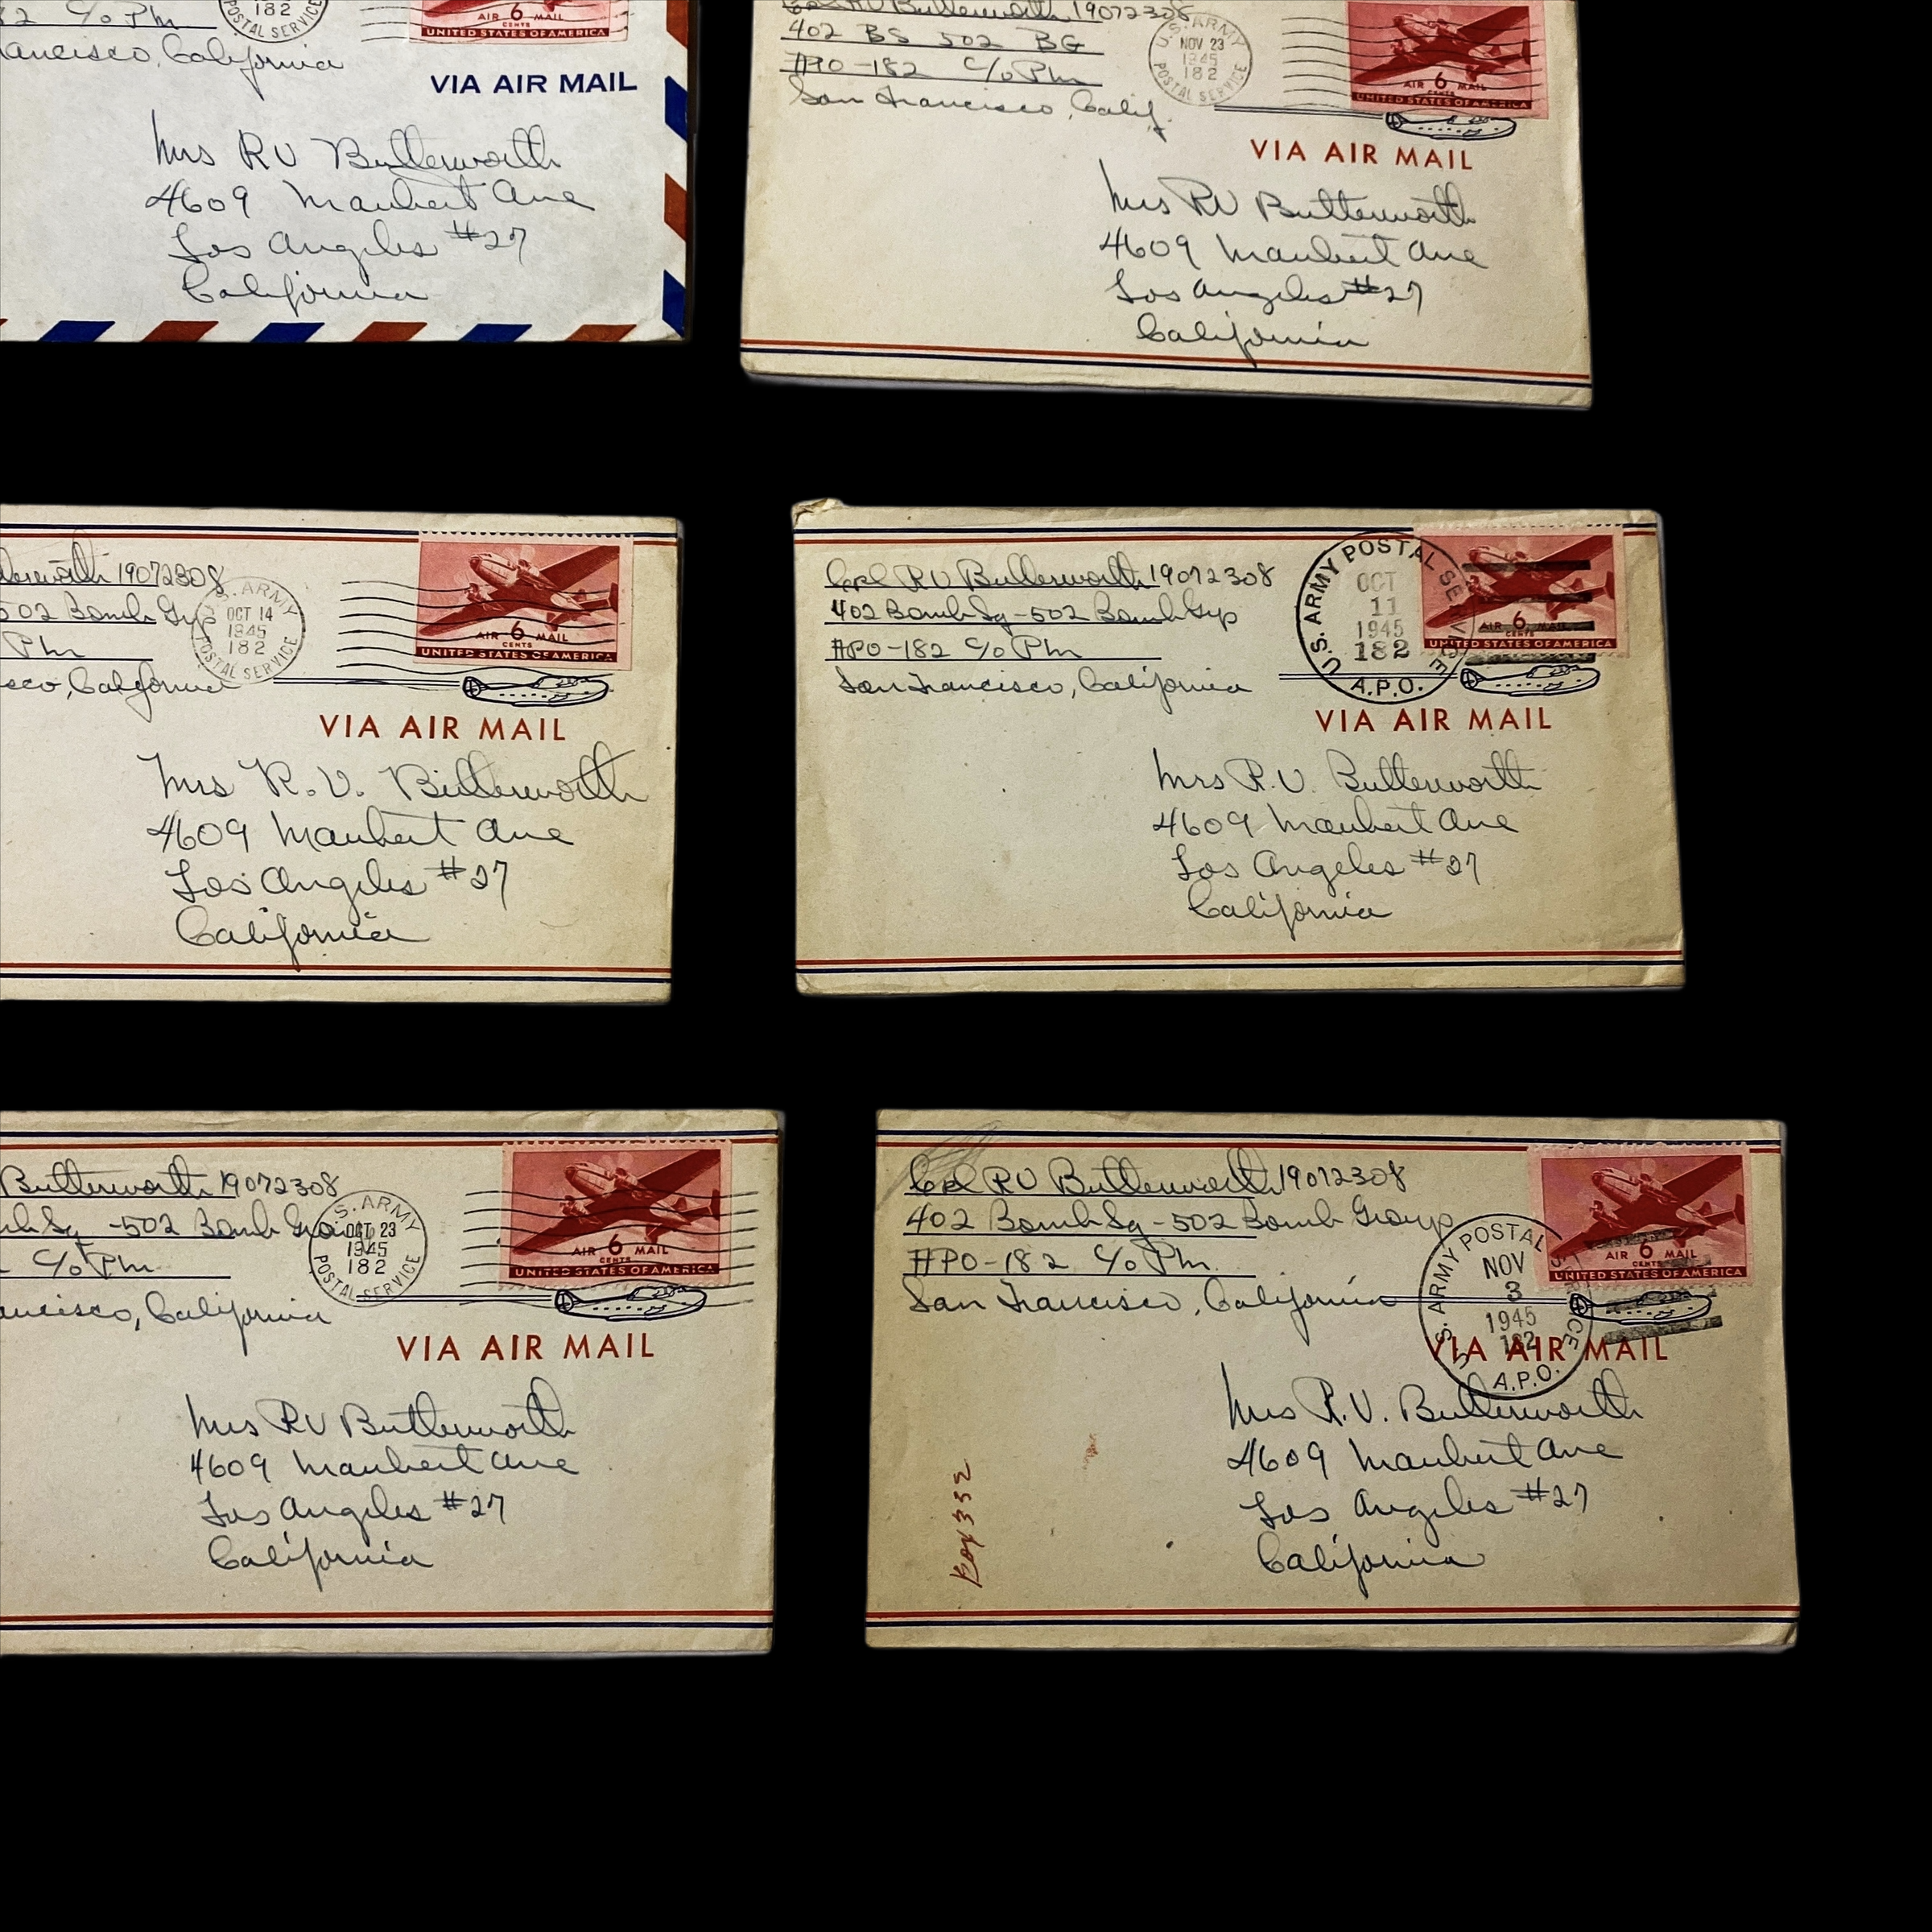 2 c/o Pm
Francisco, California
182
POSTAL SERVICE
AIR 6 MAIL
CENTS
UNITED STATES OF AMERICA
VIA AIR MAIL
Mrs RV Butterworth
4609 Maubert Ave
Los Angeles #27
California
Cpl RV Butterworth 19072308
402 BS 502 BG
APO-182 c/o Pm
San Francisco, Calif.
U.S. ARMY
NOV 23
1945
182
POSTAL SERVICE
AIR 6 MAIL
CENTS
UNITED STATES OF AMERICA
VIA AIR MAIL
Mrs RV Butterworth
4609 Maubert Ave
Los Angeles #27
California
Butterworth 19072308
502 Bomb Grp
Pm
sco, California
U.S. ARMY
OCT 14
1945
182
POSTAL SERVICE
AIR 6 MAIL
CENTS
UNITED STATES OF AMERICA
VIA AIR MAIL
Mrs R. V. Butterworth
4609 Maubert Ave
Los Angeles #27
California
Cpl RV Butterworth 19072308
402 Bomb Sq - 502 Bomb Grp
APO-182 c/o Pm
San Francisco, California
U.S. ARMY POSTAL SERVICE
OCT
11
1945
182
A.P.O.
AIR 6 MAIL
CENTS
UNITED STATES OF AMERICA
VIA AIR MAIL
Mrs R.V. Butterworth
4609 Maubert Ave
Los Angeles #27
California
Butterworth 19072308
Sq -502 Bomb Group
c/o Pm
ancisco, California
U.S. ARMY
OCT 23
1945
182
POSTAL SERVICE
AIR 6 MAIL
CENTS
UNITED STATES OF AMERICA
VIA AIR MAIL
Mrs RV Butterworth
4609 Maubert Ave
Los Angeles #27
California
Cpl RV Butterworth 19072308
402 Bomb Sq - 502 Bomb Group
APO-182 c/o Pm.
San Francisco, California
U.S. ARMY POSTAL SERVICE
NOV
3
1945
182
A.P.O.
AIR 6 MAIL
CENTS
UNITED STATES OF AMERICA
VIA AIR MAIL
Mrs R.V. Butterworth
4609 Maubert Ave
Los Angeles #27
California
Box 352